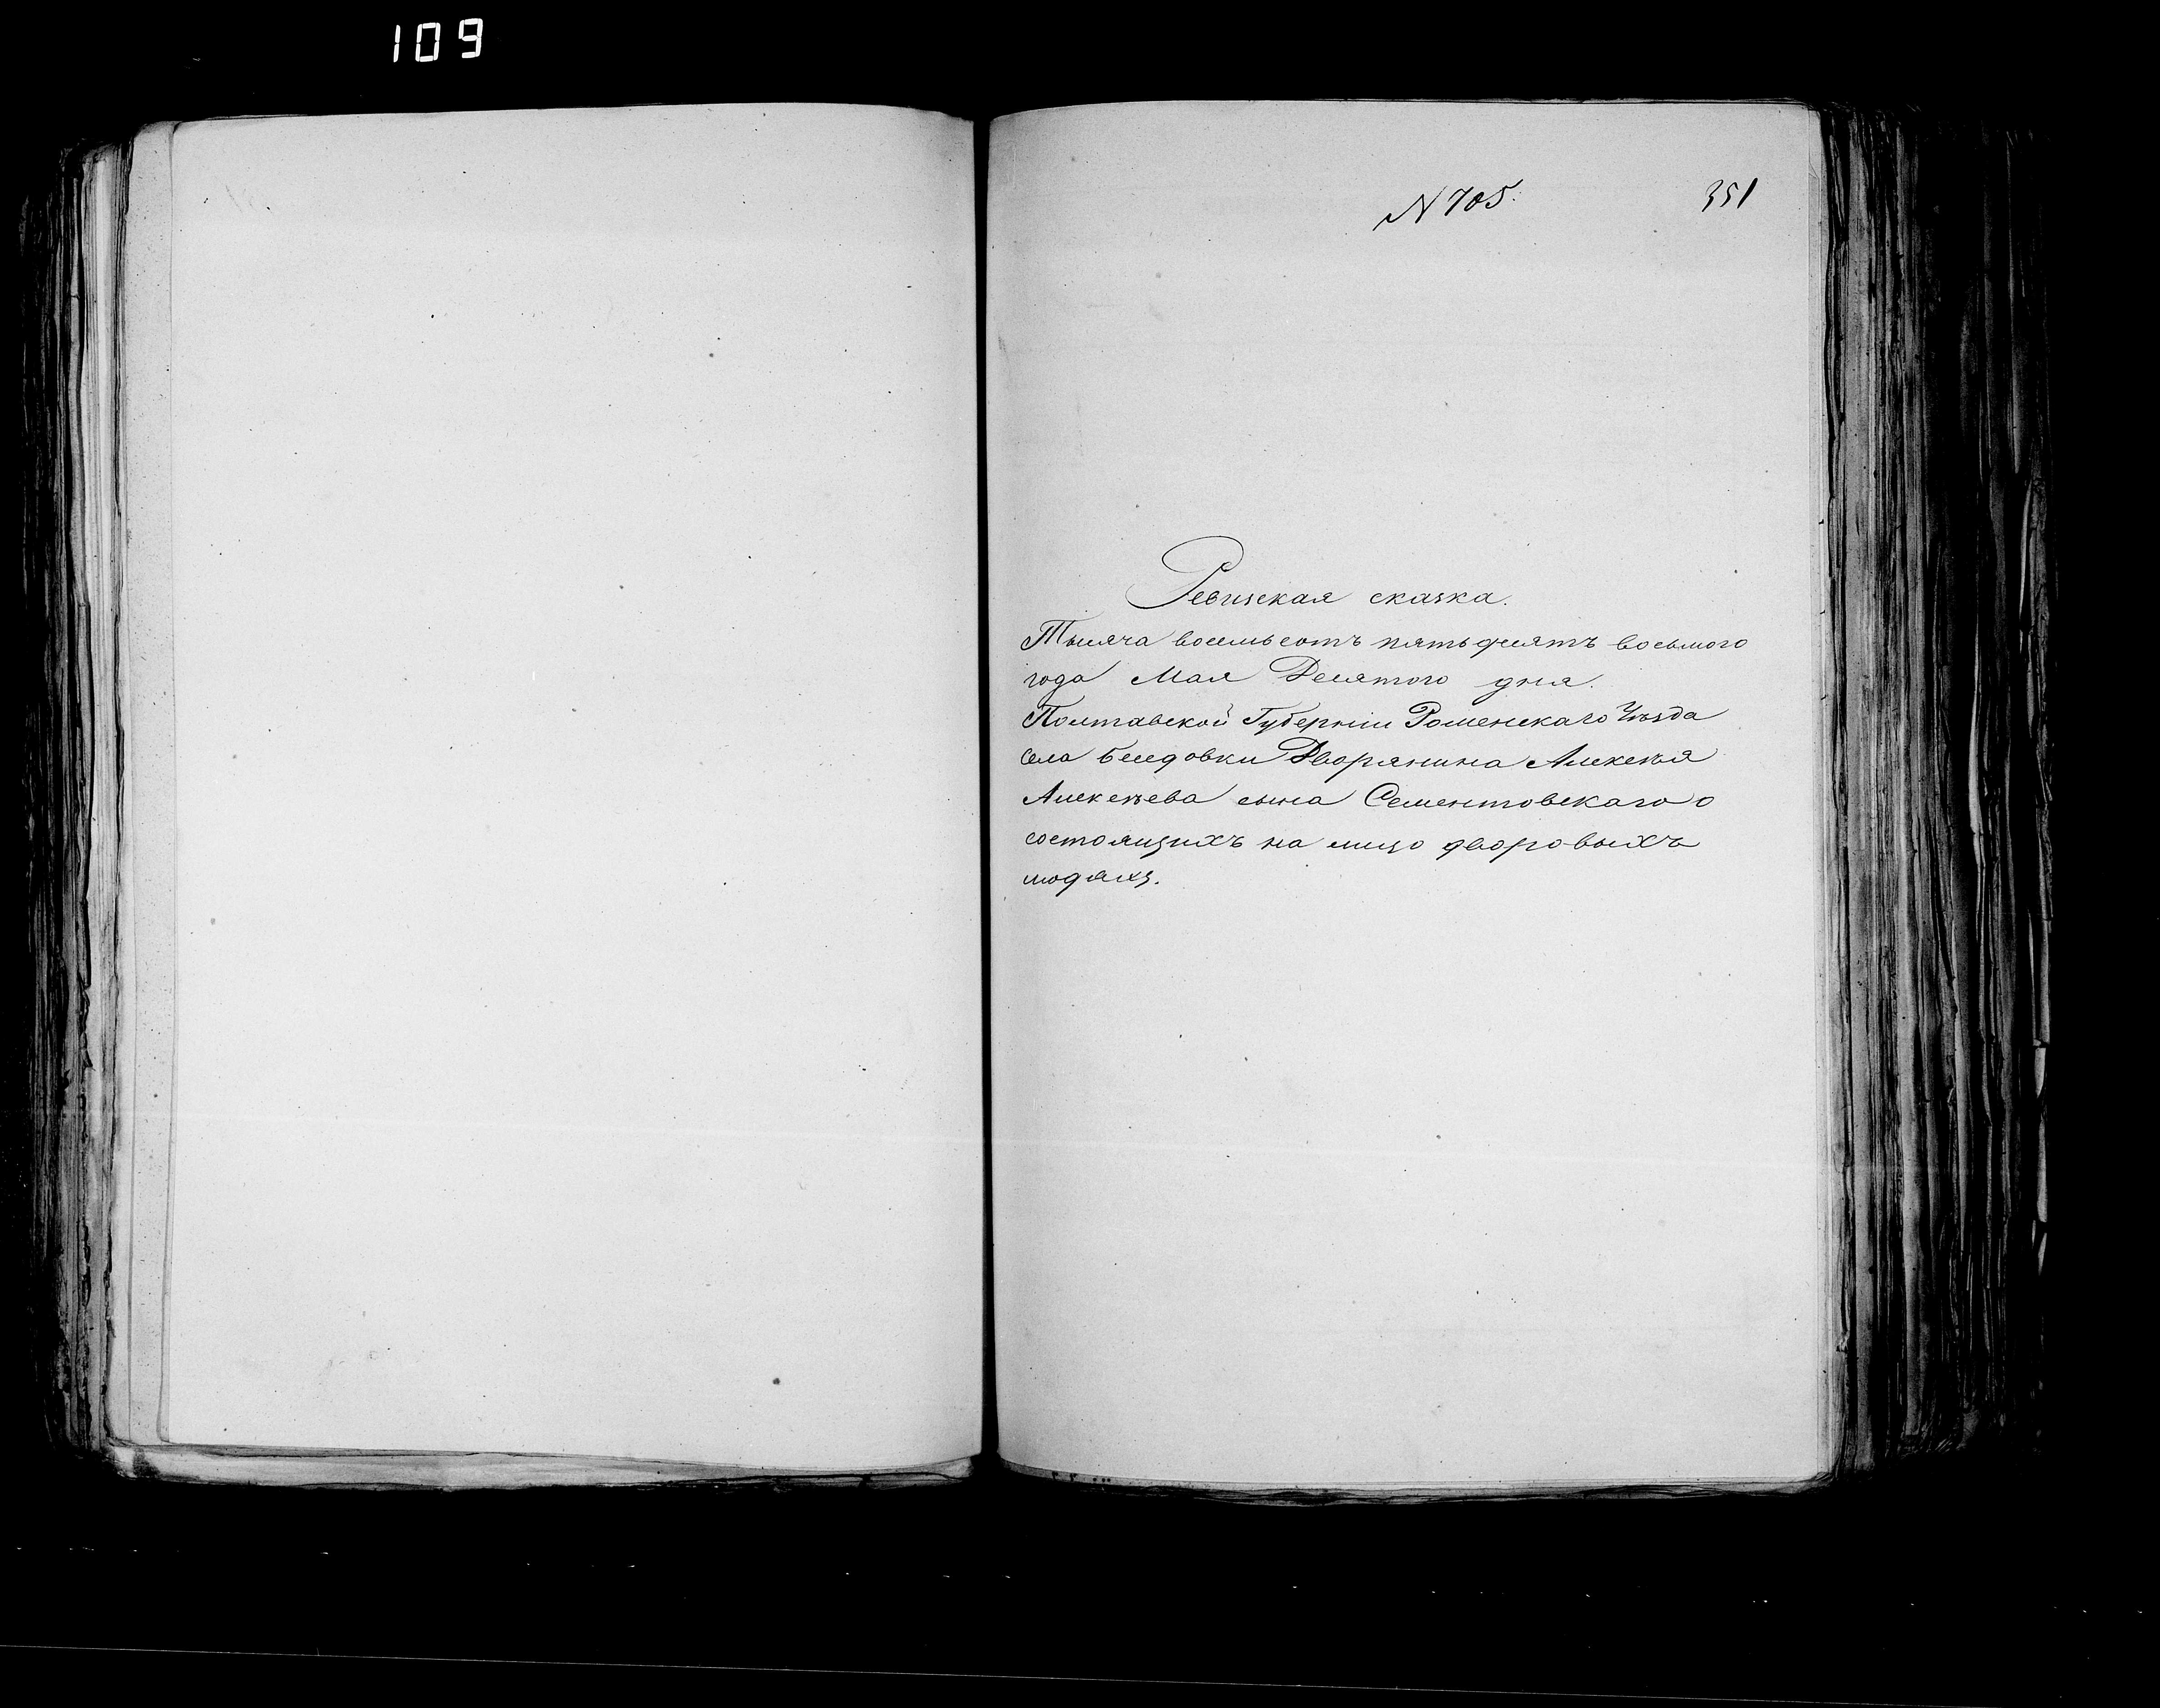 109
N 705.
351
Ревизская сказка.
Тысяча восемьсотъ пятьдесятъ восьмого
года Мая Десятого дня.
Полтавской Губерніи Роменскаго Уѣзда
села Беседовки Дворянина Алексѣя
Алексѣева сына Сементовскаго о
состоящихъ на лицо дворовыхъ
людяхъ.